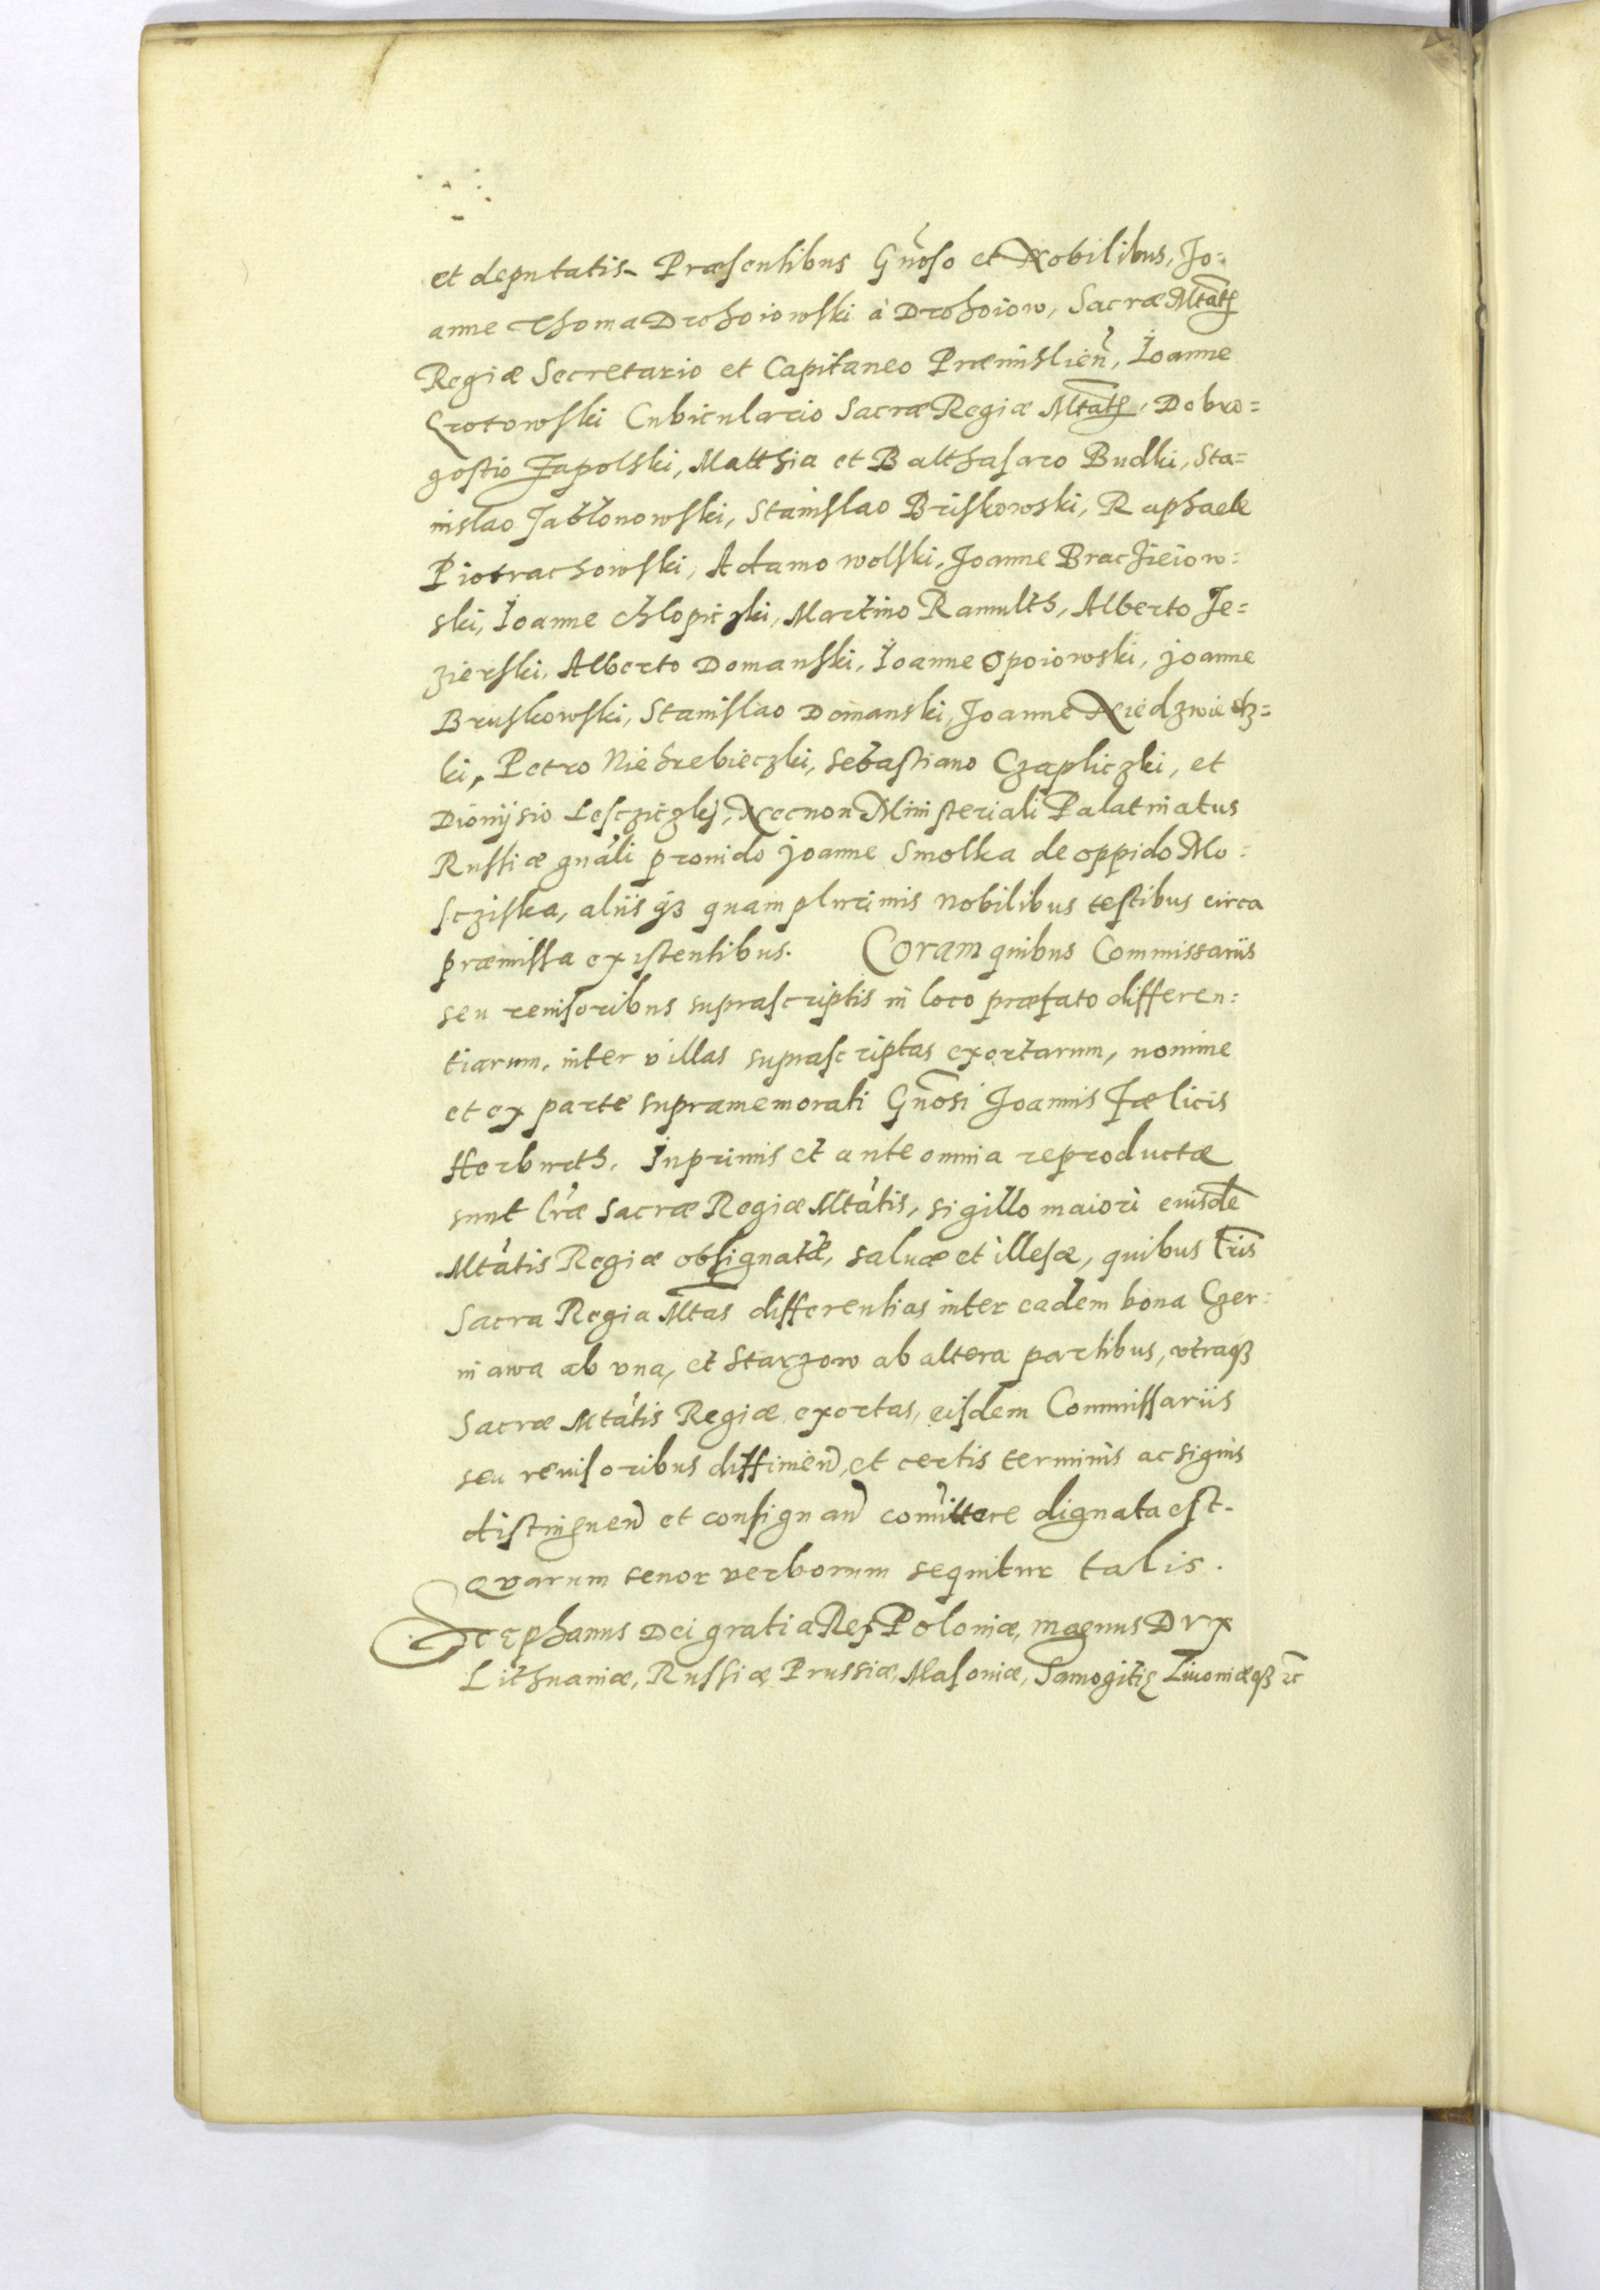 et deputatis. Præsentibus Gnoso et Nobilibus, Jo-
anne Thoma Drohoiowski à Drohoiow, Sacræ Mtatis
Regiæ Secretario et Capitaneo Præmislien, Joanne
Grotowski Cubiculario Sacræ Regiæ Mtatis, Dobro=
gostio Zapolski, Matthia et Balthasaro Budki, Sta=
nislao Jablonowski, Stanislao Briskowski, Raphaele
Piotrachowski, Adamo wolski, Joanne Brachieiow=
ski, Joanne Chlopiczki, Martino Ramulth, Alberto Je=
zierski, Alberto Domanski, Joanne Opoiowski, Joanne
Bruskowski, Stanislao Domanski, Joanne Niedzwiedz=
ki, Petro Niehrebieczki, Sebastiano Czapliczki, et
Dionÿsio Lesczÿczkj, Necnon Ministeriali Palatinatus
Russiæ gnali prouido Joanne Smolka de oppido Mo=
scziska, aliis qz quam plurimis nobilibus testibus circa
præmissa existentibus. Coram quibus Commissariis
seu reuisoribus suprascriptis in loco præfato differen=
tiarum, inter villas suprascriptas exortarum, nomine
et ex parte supramemorati Gnosi Joannis Fælicis
Herburth. Inprimis et ante omnia reproductæ
sunt lræ Sacræ Regiæ Mtatis, sigillo maiori eiusde
Mtatis Regiæ obsignatæ, saluæ et illesæ, quibus lris
Sacra Regia Mtas differentias inter eadem bona Czer=
niawa ab vna, et Starzow ab altera partibus, vtraqz
Sacræ Mtatis Regiæ exortas, eisdem Commissariis
seu reuisoribus diffinien, et certis terminis ac signis
distinguen et consignan comittere dignata est.
Qvarum tenor verborum sequitur talis.
Stephanus Dei gratia Rex Poloniæ, magnus Dvx
Lithuaniæ, Russiæ Prussiæ, Masoniæ, Samogitię Liuoniæqz etc